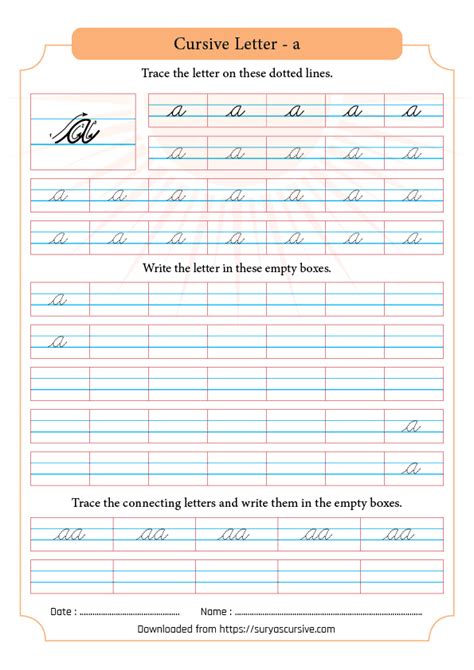 Cursive Letter - a
Trace the letter on these dotted lines.
a a a a a a
a a a a a
a a a a a a a
a a a a a a a
Write the letter in these empty boxes.
a
a
a
a
Trace the connecting letters and write them in the empty boxes.
aa aa aa aa aa
Date : ................................ Name : ................................
Downloaded from https://suryascursive.com